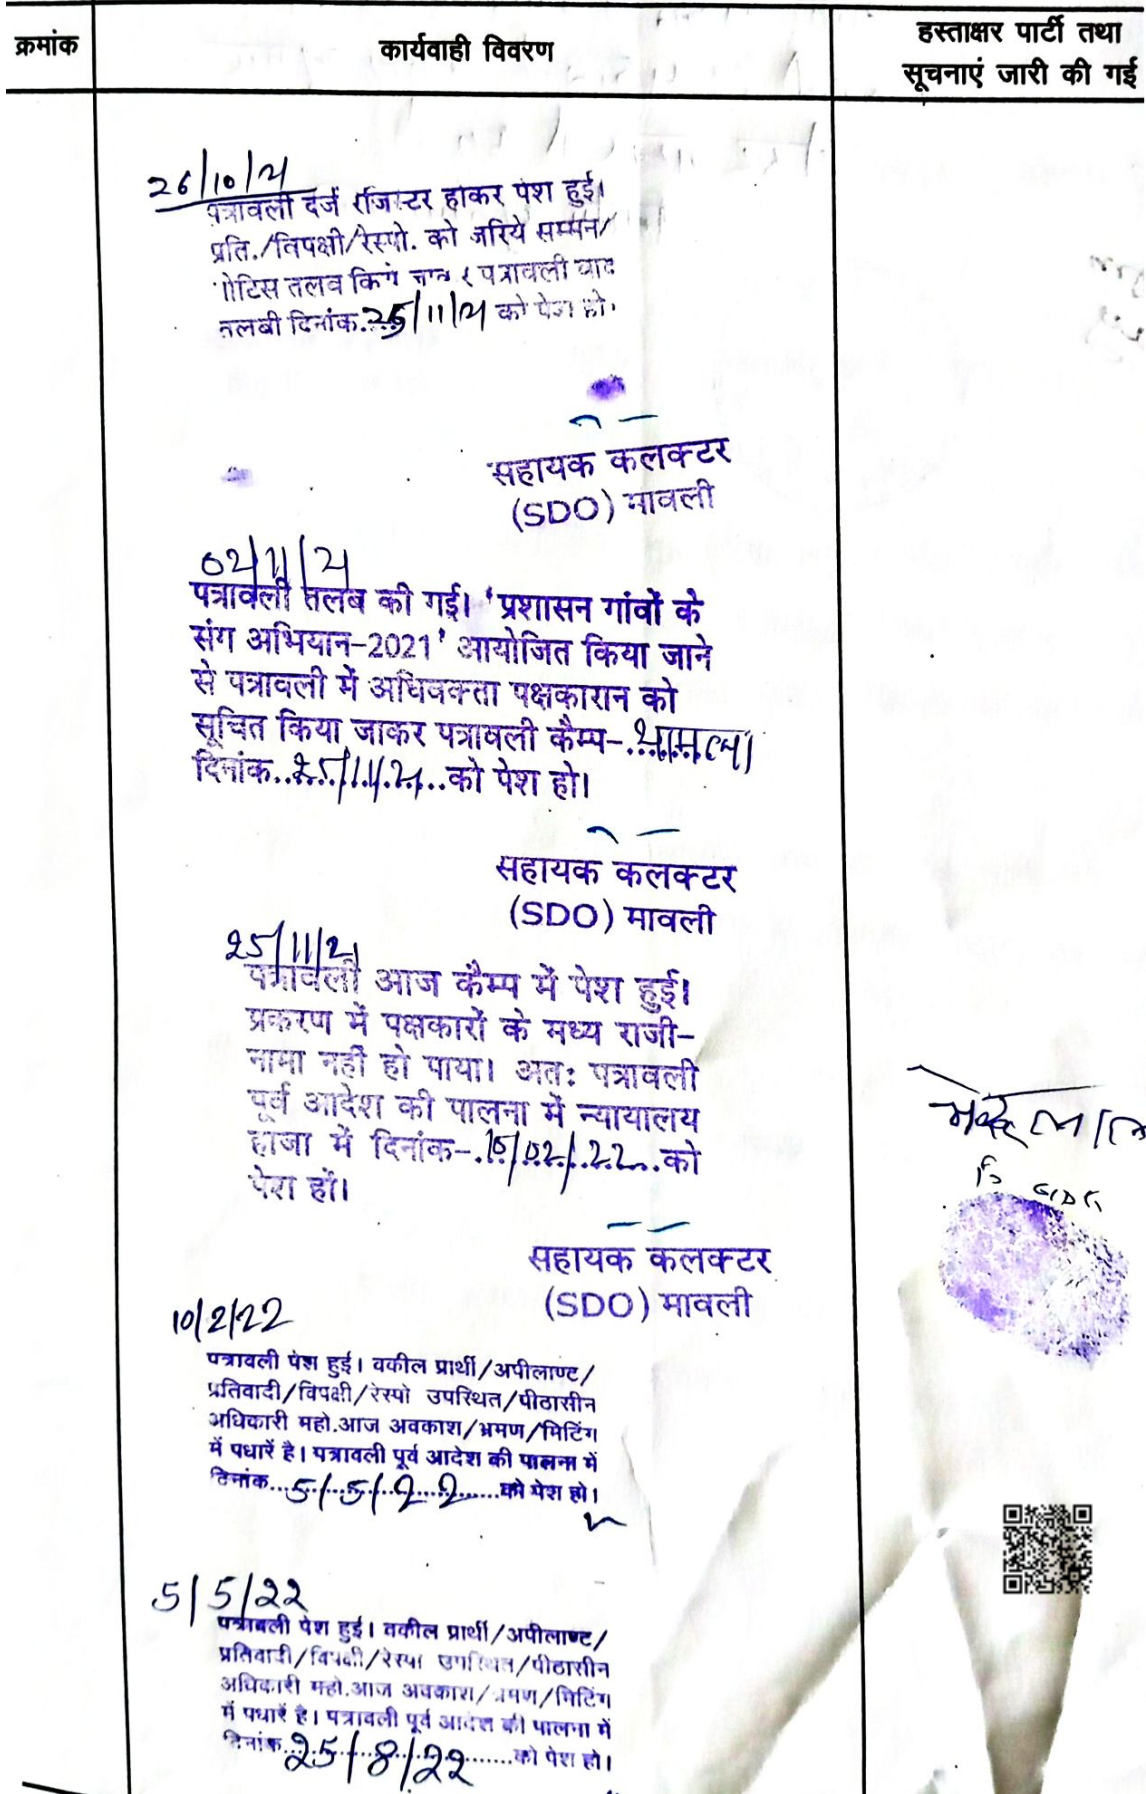 क्रमांक
कार्यवाही विवरण
हस्ताक्षर पार्टी तथा
सूचनाएं जारी की गई
26/10/21
पत्रावली दर्ज रजिस्टर होकर पेश हुई।
प्रति./विपक्षी/रेस्पो. को जरिये सम्मन/
नोटिस तलब किये जाकर पत्रावली बाद
तलबी दिनांक.25/11/21 को पेश हो।
सहायक कलक्टर
(SDO) मावली
02/11/21
पत्रावली तलब की गई। 'प्रशासन गांवों के
संग अभियान-2021' आयोजित किया जाने
से पत्रावली में अधिवक्ता पक्षकारान को
सूचित किया जाकर पत्रावली कैम्प-
दिनांक..25/11/21..को पेश हो।
सहायक कलक्टर
(SDO) मावली
25/11/21
पत्रावली आज कैम्प में पेश हुई।
प्रकरण में पक्षकारों के मध्य राजी-
नामा नहीं हो पाया। अतः पत्रावली
पूर्व आदेश की पालना में न्यायालय
हाजा में दिनांक-.10/02/22..को
पेश हों।
सहायक कलक्टर
(SDO) मावली
10/2/22
पत्रावली पेश हुई। वकील प्रार्थी/अपीलाण्ट/
प्रतिवादी/विपक्षी/रेस्पो उपस्थित/पीठासीन
अधिकारी महो.आज अवकाश/भ्रमण/मिटिंग
में पधारें है। पत्रावली पूर्व आदेश की पालना में
दिनांक...5/5/22......को पेश हो।
5/5/22
पत्रावली पेश हुई। वकील प्रार्थी/अपीलाण्ट/
प्रतिवादी/विपक्षी/रेस्पो उपस्थित/पीठासीन
अधिकारी महो.आज अवकाश/भ्रमण/मिटिंग
में पधारें है। पत्रावली पूर्व आदेश की पालना में
दिनांक..25/8/22......को पेश हो।